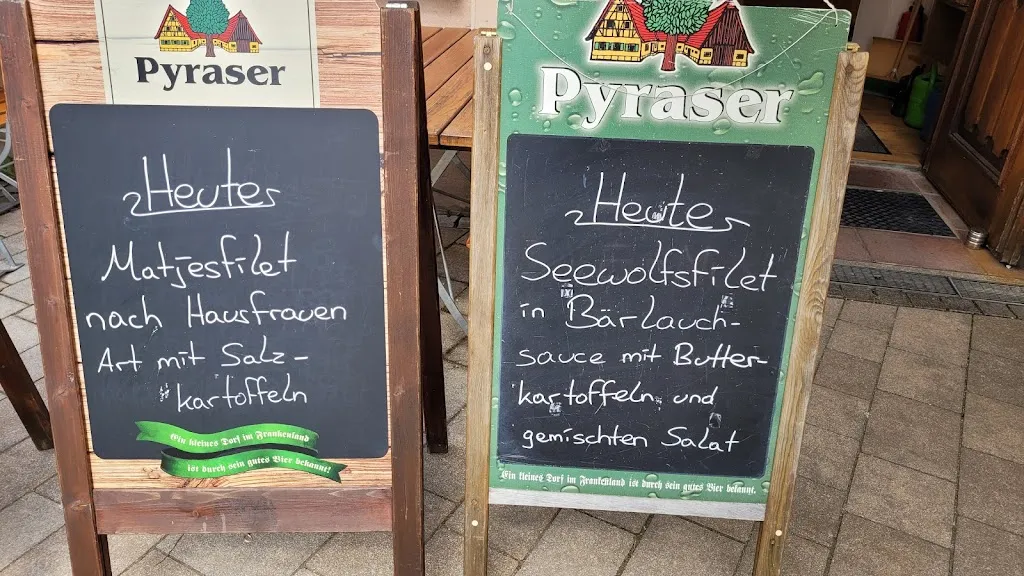 Pyraser
Heute
Matjesfilet
nach Hausfrauen
Art mit Salz-
kartoffeln
Ein kleines Dorf im Frankenland
ist durch sein gutes Bier bekannt!
Pyraser
Heute
Seewolfsfilet
in Bärlauch-
sauce mit Butter-
kartoffeln und
gemischten Salat
Ein kleines Dorf im Frankenland ist durch sein gutes Bier bekannt.